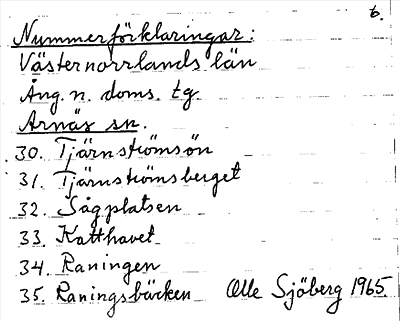 6.
Nummerförklaringar:
Västernorrlands län
Ång. n. doms. tg.
Arnäs sn.
30. Tjärnströmsön
31. Tjärnströmsberget
32. Sågplatsen
33. Katthavet
34. Raningen
35. Raningsbäcken Olle Sjöberg 1965.